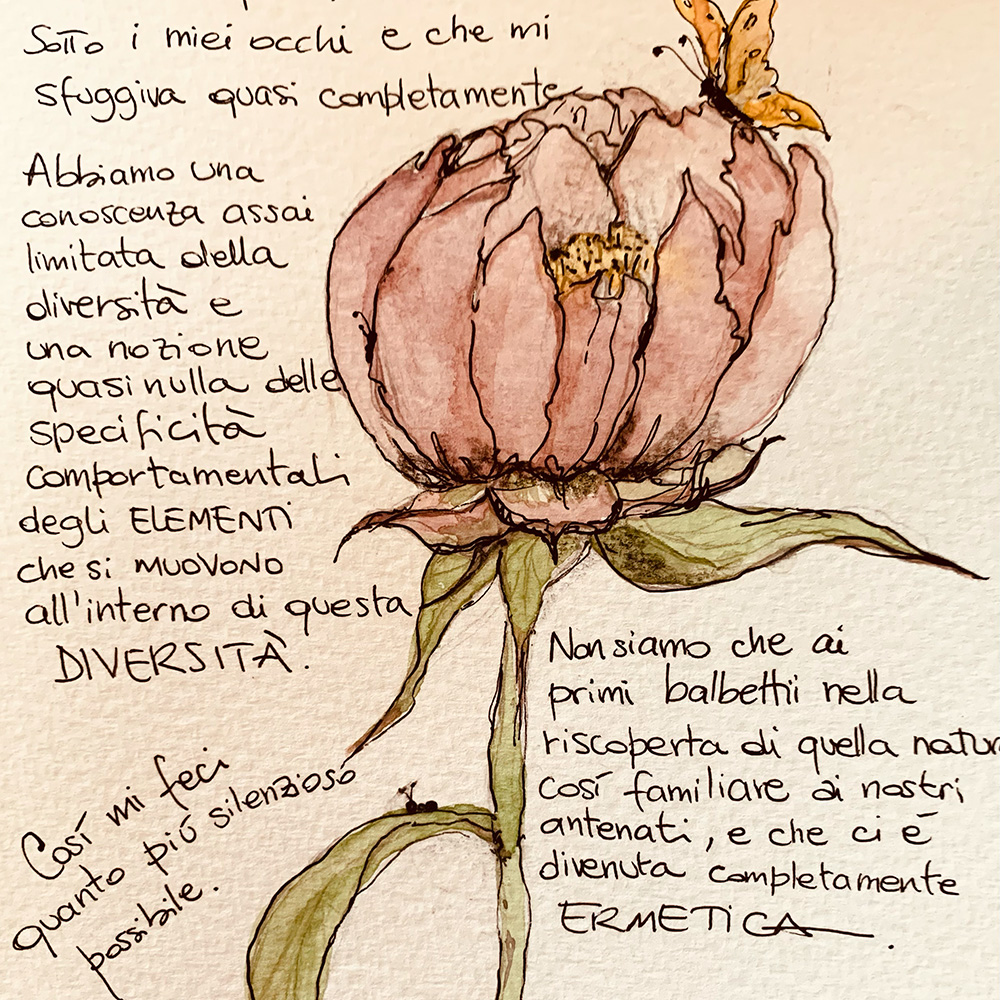 Sotto i miei occhi e che mi
sfuggiva quasi completamente
Abbiamo una
conoscenza assai
limitata della
diversità e
una nozione
quasi nulla delle
specificità
comportamentali
degli ELEMENTI
che si MUOVONO
all'interno di questa
DIVERSITÀ.
Così mi feci
quanto più silenzioso
possibile.
Non siamo che ai
primi balbettii nella
riscoperta di quella natur
così familiare ai nostri
antenati, e che ci è
divenuta completamente
ERMETICA.